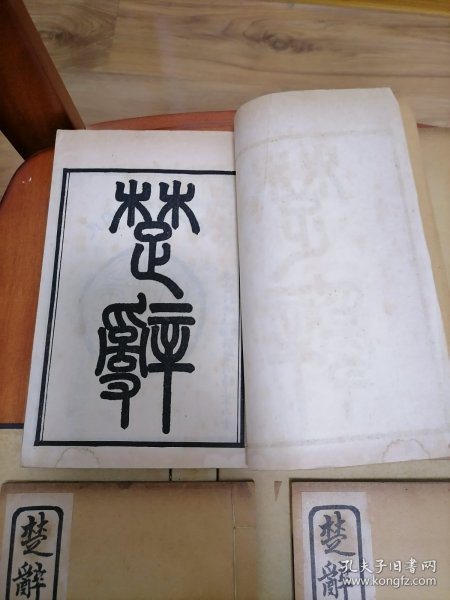 楚辭
楚辭
楚辭
孔夫子旧书网
www.kongfz.com